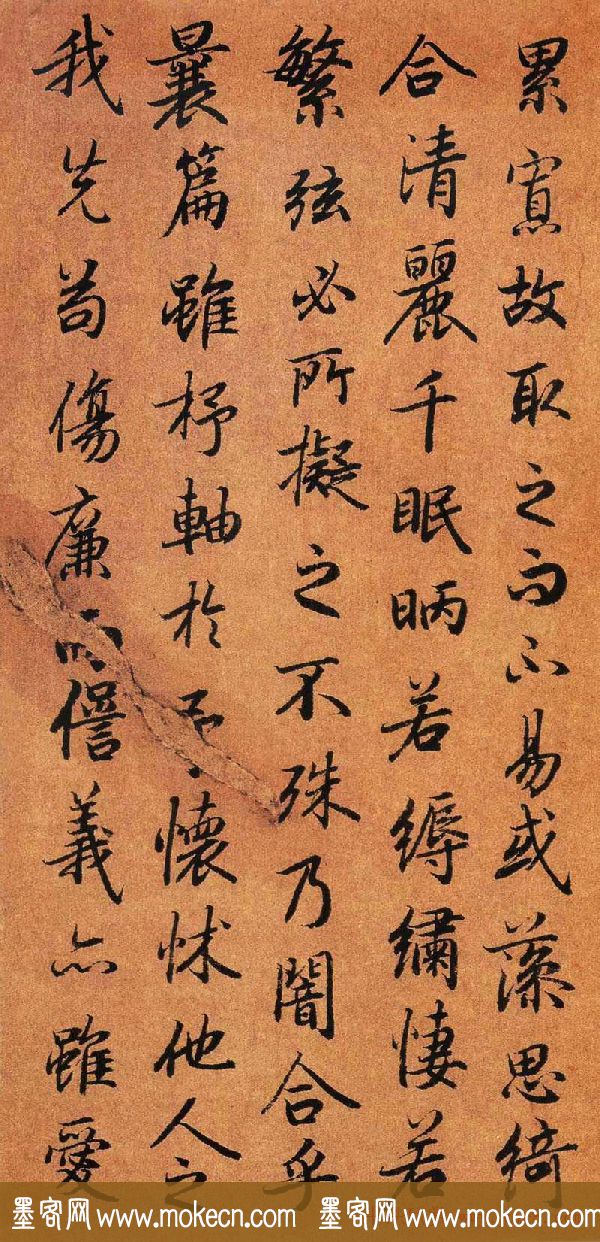 累寡故取足而不易或藻思綺
合清麗千眠昞若縟繡悽若
繁弦必所擬之不殊乃闇合乎
曩篇雖杼軸於予懷怵他人之
我先苟傷廉而𠎝義亦雖愛
墨客网 www.mokecn.com 墨客网 www.mokecn.com